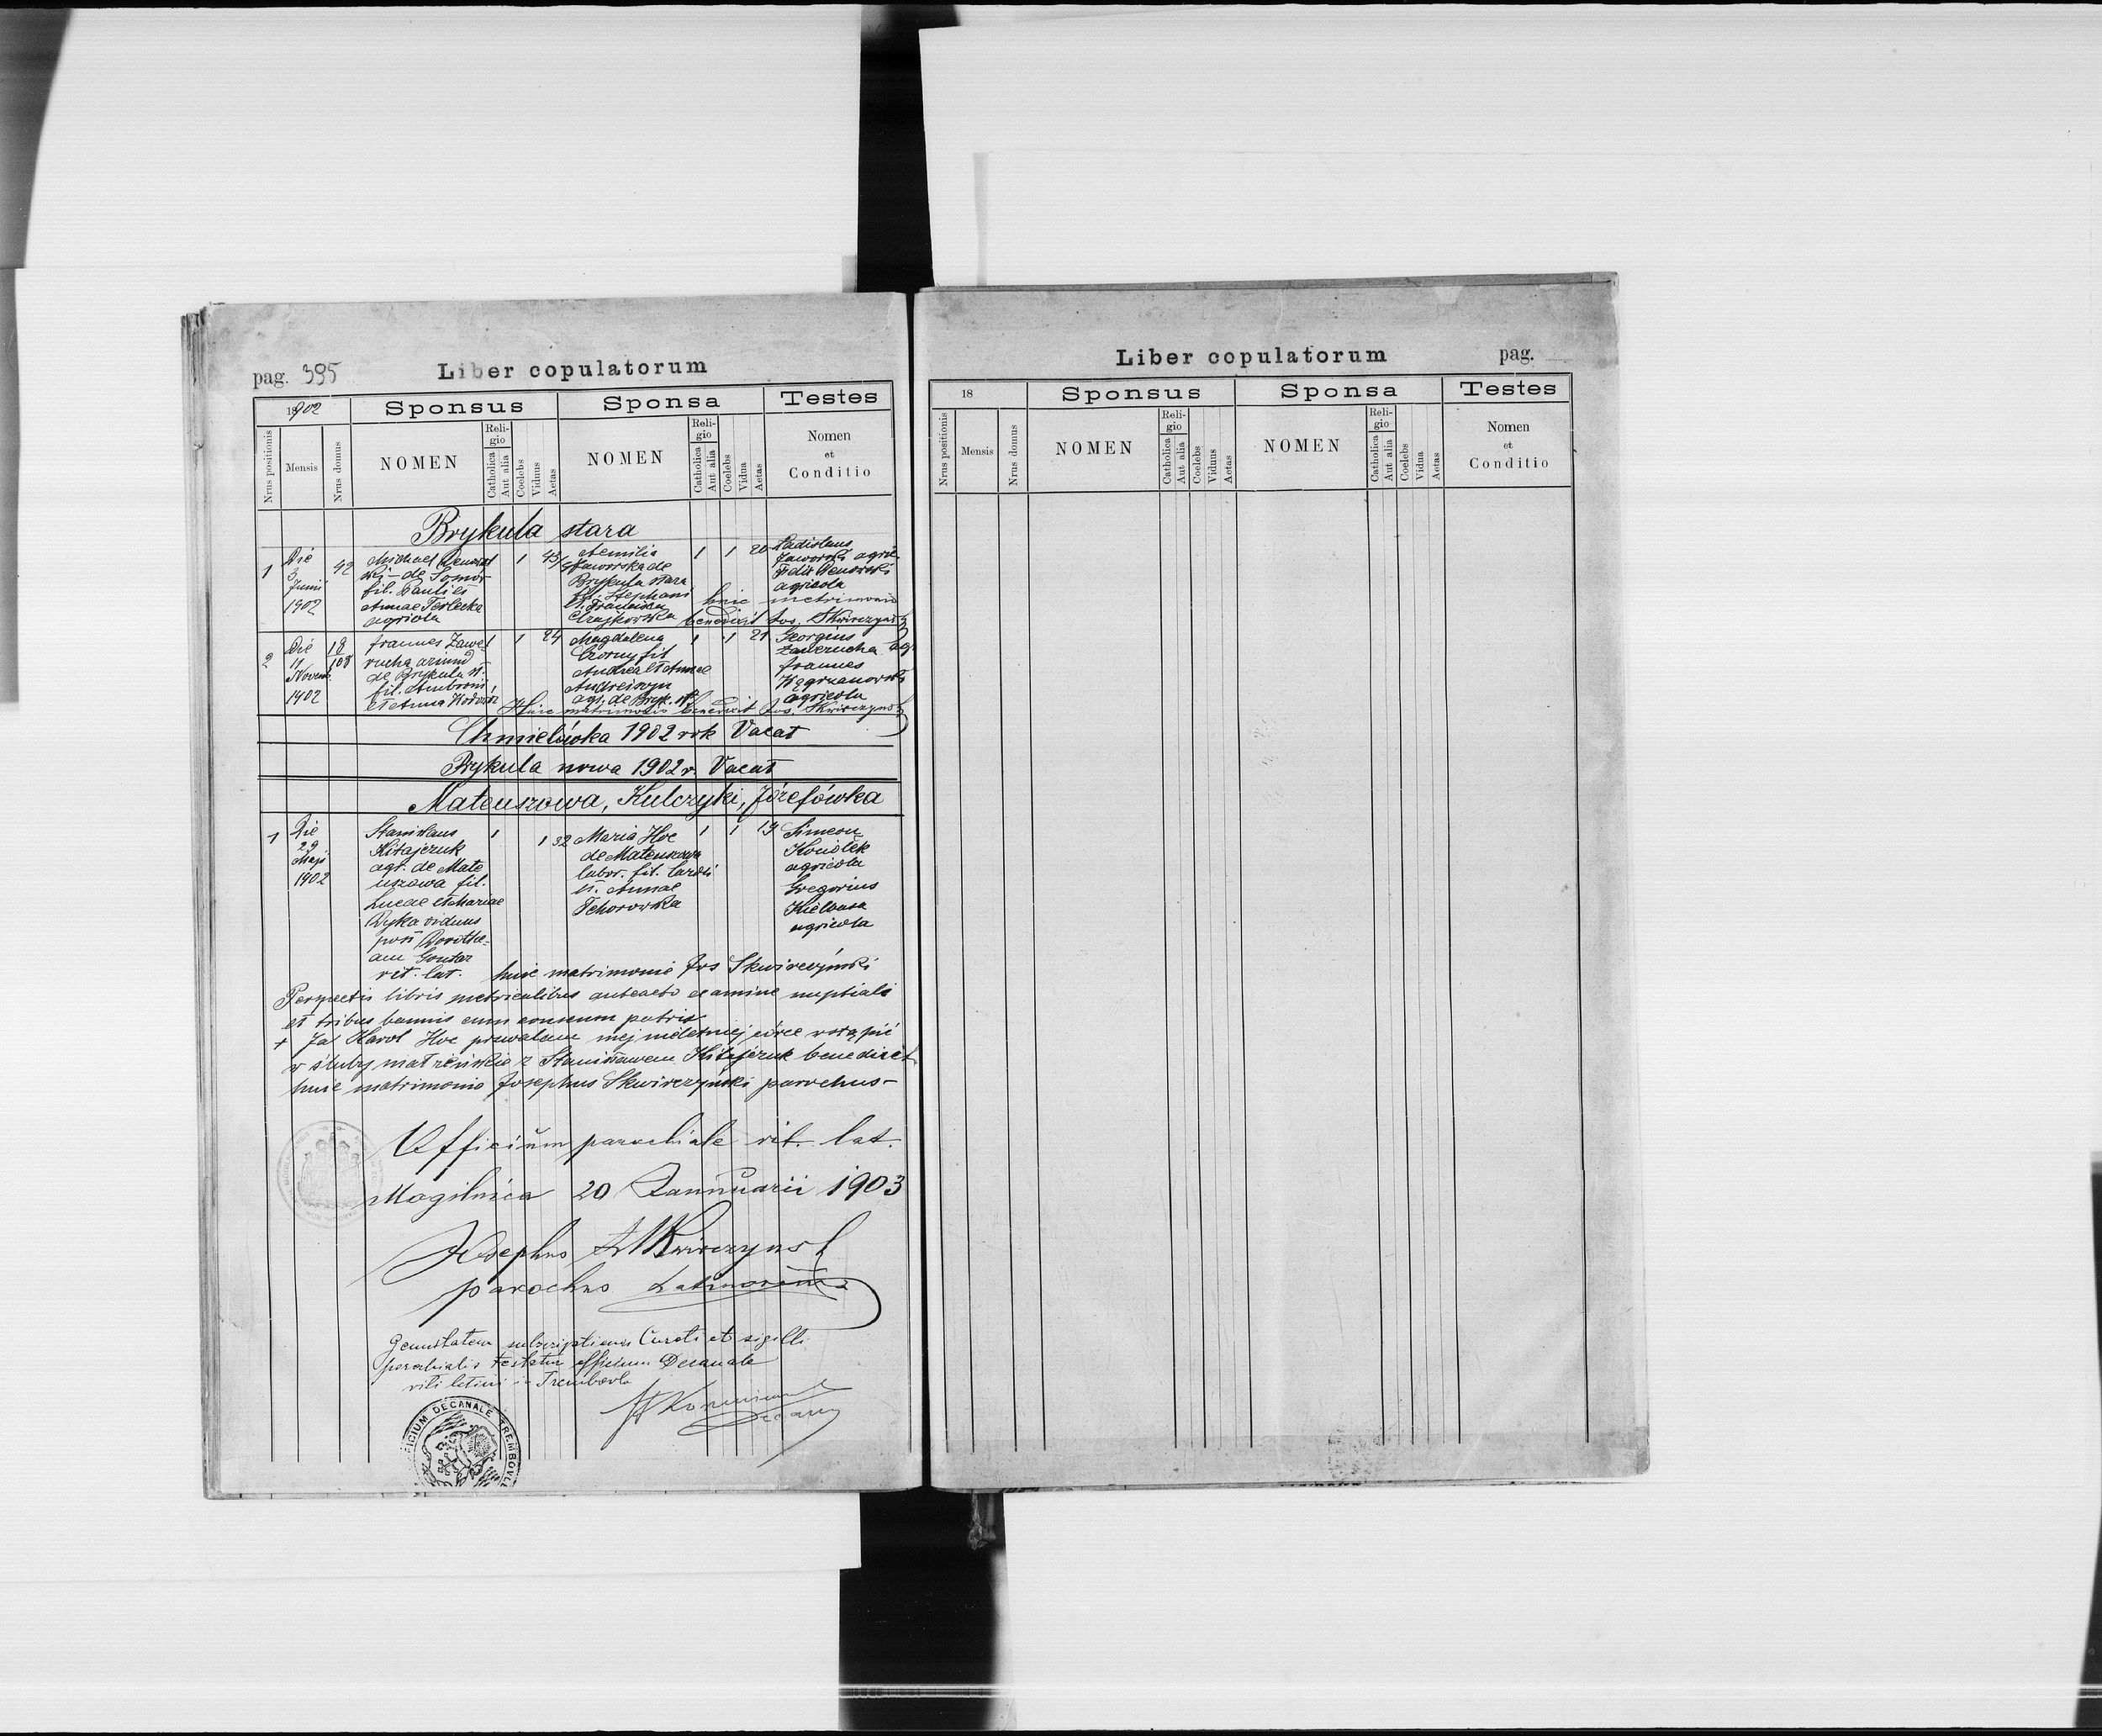 pag. 395 Liber copulatorum
1902 Sponsus Sponsa Testes
Nrus positionis Mensis Nrus domus NOMEN Religio Catholica Aut alia Coelebs Viduus Aetas NOMEN Religio Catholica Aut alia Coelebs Vidua Aetas Nomen et Conditio
Brykula stara
1 Die 3 Junii 1902
42
Michael
ski - de
fil. Pauli et
Annae Terlecka
agricola
1 45
Aemilia
Jaworska de
Brykula stara
fil. Stephani
et Francisca
Czajkowska
1 1 20
Ladislaus
Jaworski agric
agricola
huic metrimonio
benedixit Jos. Skwirczyński
2 Die 11 Novem. 1902
18
108
Joannes Zawe
rucha
de Brykula st.
fil. Ambrosii
et Anna
1 24
Magdalena
Czorny fil
Andrea et Annae
Andreiszyn
agr. de Bryk. st.
1 1 21
Georgius
Zawerucha agr.
Joannes
Węgrzanowski
agricola
Huic matrimonio benedixit Jos. Skwirczyński
Chmielówka 1902 rok Vacat
Brykula nowa 1902 r. Vacat
Mateuszowa, Kulczyki, Józefówka
1 Die 29 Maji 1902
Stanislaus
Kitajczuk
agr. de Mate
uszowa fil.
Lucae et Mariae
Dyka viduus
post Dorothe-
am Gontar
rit. lat.
1 1 32
Maria Hoc
de Mateuszowa
labor. fil. Caroli
et. Annae
Tchorowska
1 1 19
Simeon
Konotek
agricola
Gregorius
Kiełbasa
agricola
huic matrimonio Jos Skwirczyński
Perspectis libris metricalibus anteacto examine nuptiali
et tribus bannis cum consensu patris
+ Ja Karol Hoc pozwalam mej nieletniej córce wstąpić
w śluby małżeńskie z Stanisławem Kitajczuk benedixit
huic matrimonio Josephus Skwirczyński parochus -
Officium parochiale rit. lat.
Mogilnica 20 Jannuarii 1903
Josephus Skwirczyński
parochus Latinorum
Genuitatem subscriptionis Curati et sigilli
parochialis testatur officium Decanale
riti latini in Trembowla
Decanus
OFFICIUM DECANALE TREMBOVL
Liber copulatorum pag.
18 Sponsus Sponsa Testes
Nrus positionis Mensis Nrus domus NOMEN Religio Catholica Aut alia Coelebs Viduus Aetas NOMEN Religio Catholica Aut alia Coelebs Vidua Aetas Nomen et Conditio